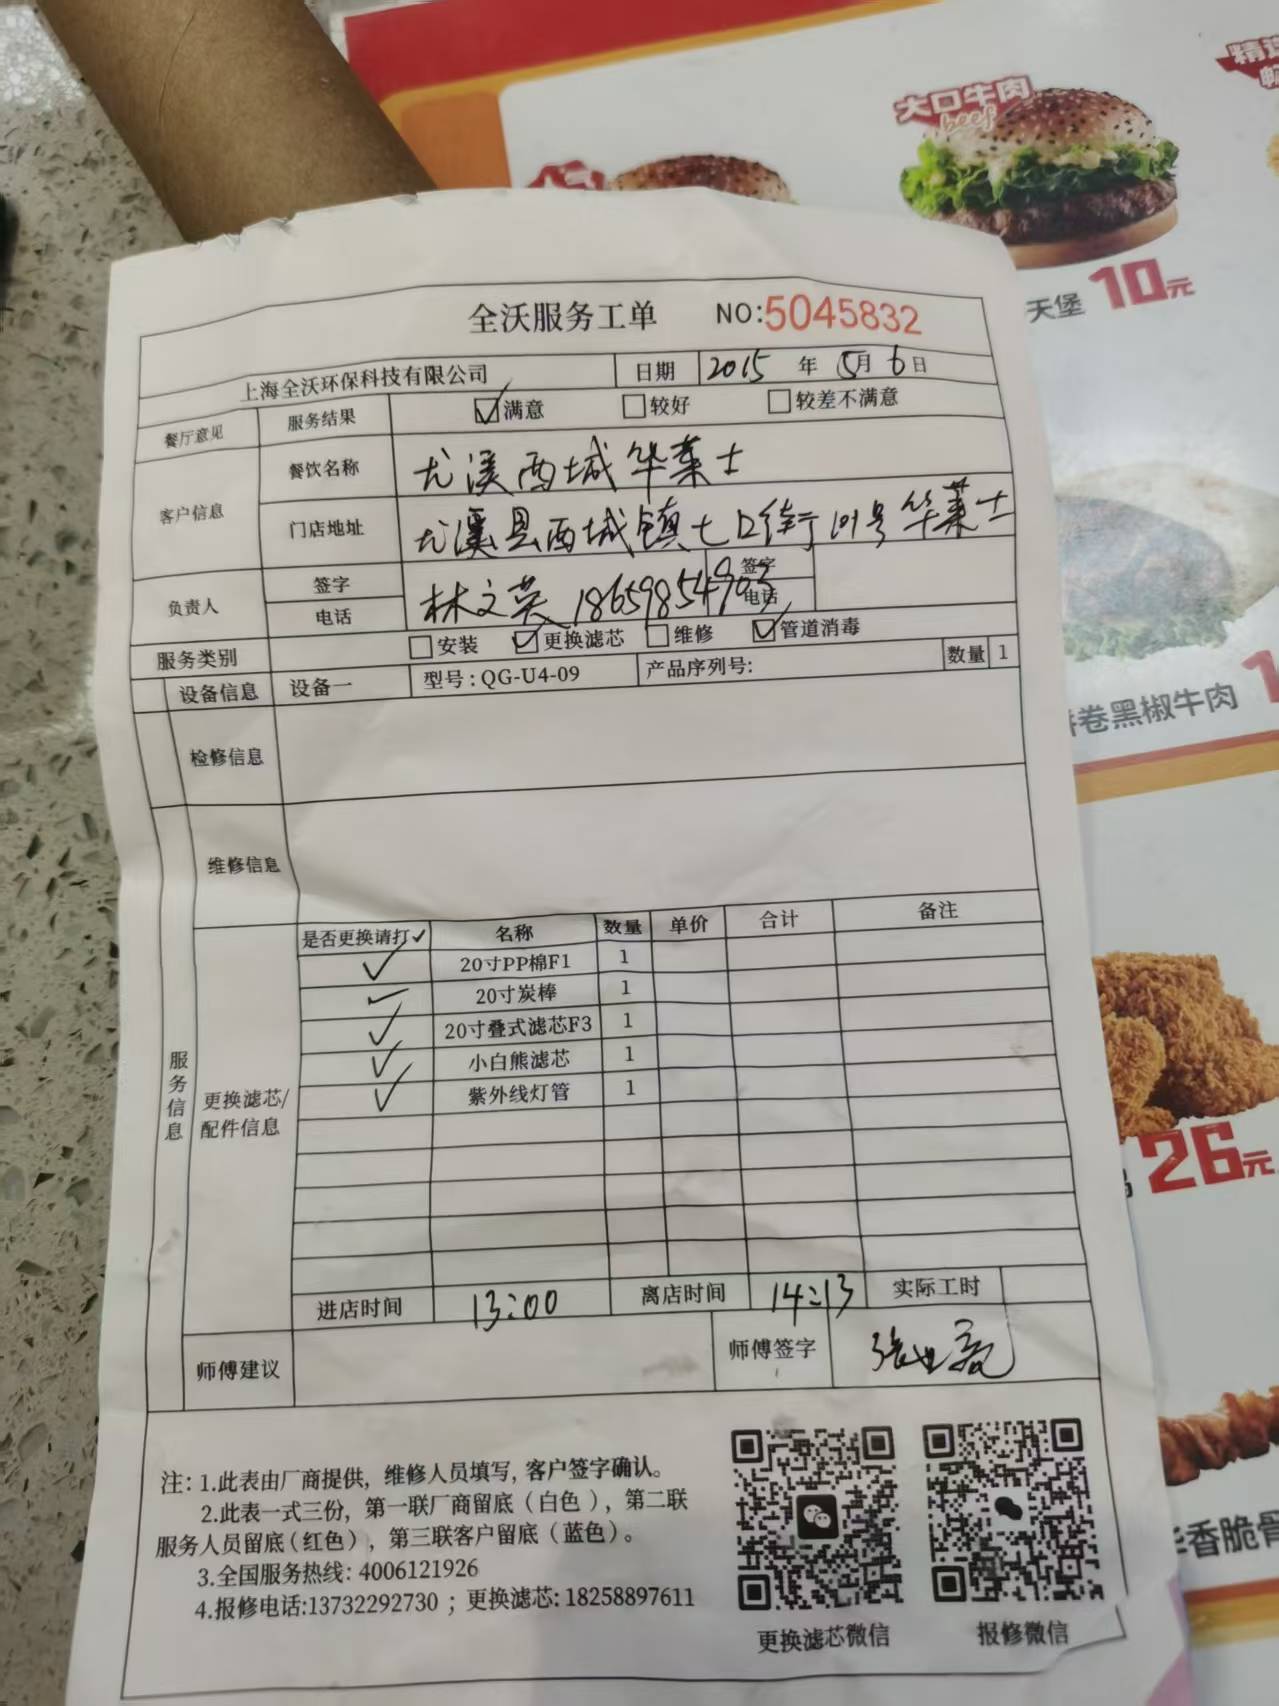 精选
大口牛肉
beef
天堡 10元
全沃服务工单 NO:5045832
上海全沃环保科技有限公司 日期 2015 年 5月 6日
餐厅意见 服务结果 ☑满意 □较好 □较差不满意
客户信息 餐饮名称 尤溪西城华莱士
门店地址 尤溪县西城镇七口街101号华莱士
负责人 签字 林文英 18659854903 签字
电话 电话
服务类别 □安装 ☑更换滤芯 □维修 ☑管道消毒
设备信息 设备一 型号:QG-U4-09 产品序列号: 数量 1
检修信息
维修信息
服务信息
更换滤芯/
配件信息
是否更换请打✓ 名称 数量 单价 合计 备注
✓ 20寸PP棉F1 1
✓ 20寸炭棒 1
✓ 20寸叠式滤芯F3 1
✓ 小白熊滤芯 1
✓ 紫外线灯管 1
进店时间 13:00 离店时间 14:13 实际工时
师傅建议 师傅签字
注: 1.此表由厂商提供, 维修人员填写, 客户签字确认。
2.此表一式三份, 第一联厂商留底(白色), 第二联
服务人员留底(红色), 第三联客户留底(蓝色)。
3.全国服务热线: 4006121926
4.报修电话:13732292730 ; 更换滤芯: 18258897611
更换滤芯微信 报修微信
卷黑椒牛肉 1
26元
香脆骨